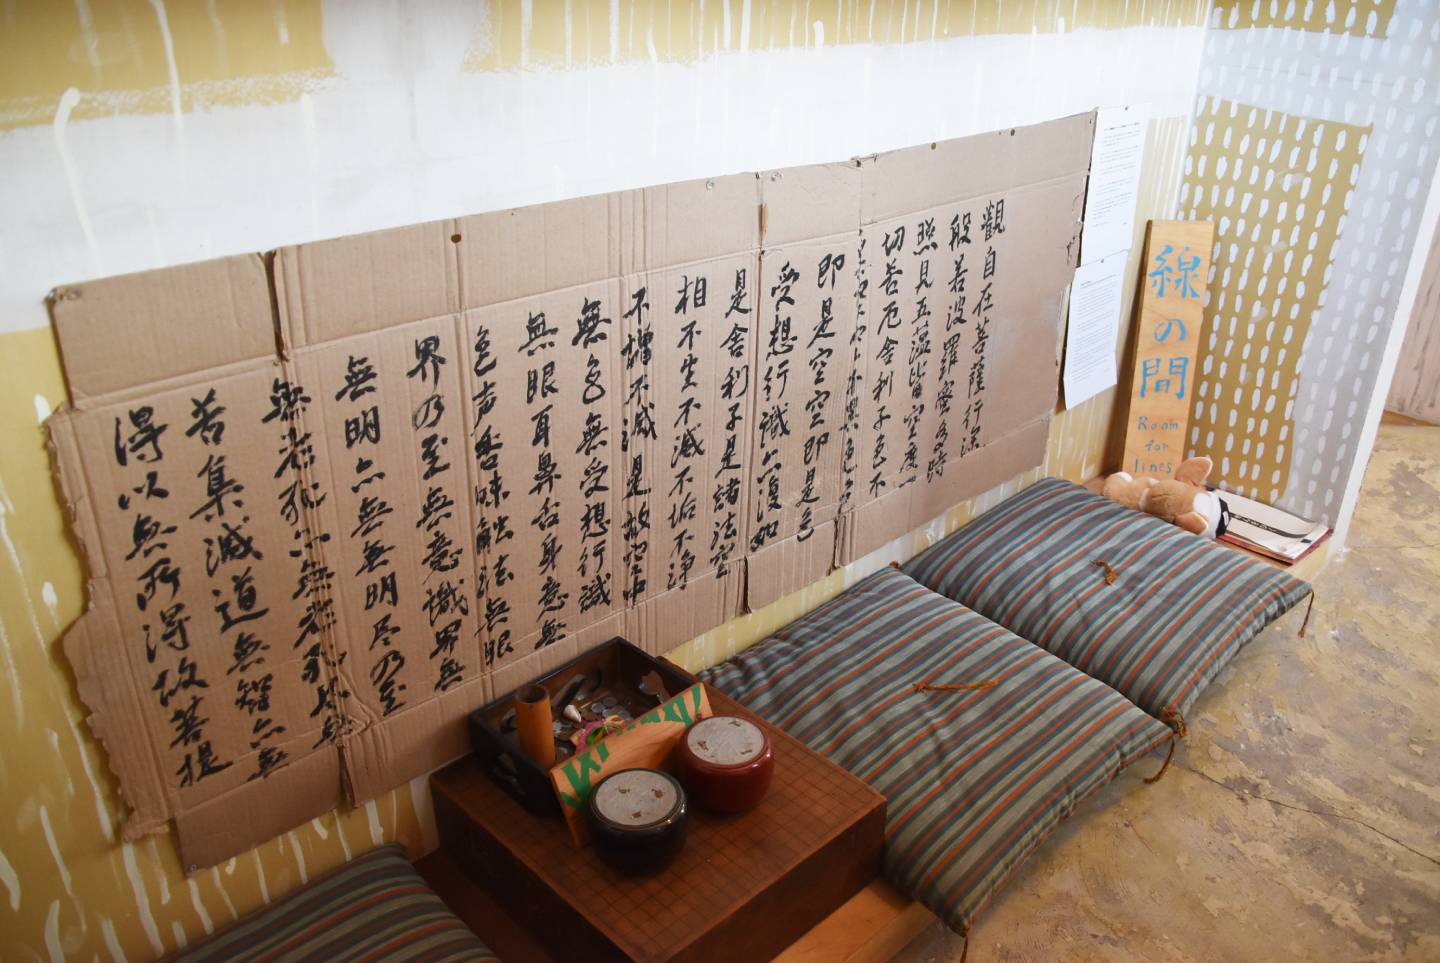 觀自在菩薩行深
般若波羅蜜多時
照見五蘊皆空度一
切苦厄舍利子色不
不異色
即是空空即是色
受想行識亦復如
是舍利子是諸法空
相不生不滅不垢不浄
不増不滅是故空中
無色無受想行識
無眼耳鼻舌身意無
色声香味触法無眼
界乃至無意識界無
無明亦無無明尽乃至
無老死亦無老死尽無
苦集滅道無智亦無
得以無所得故菩提
線の間
Room
for
lines